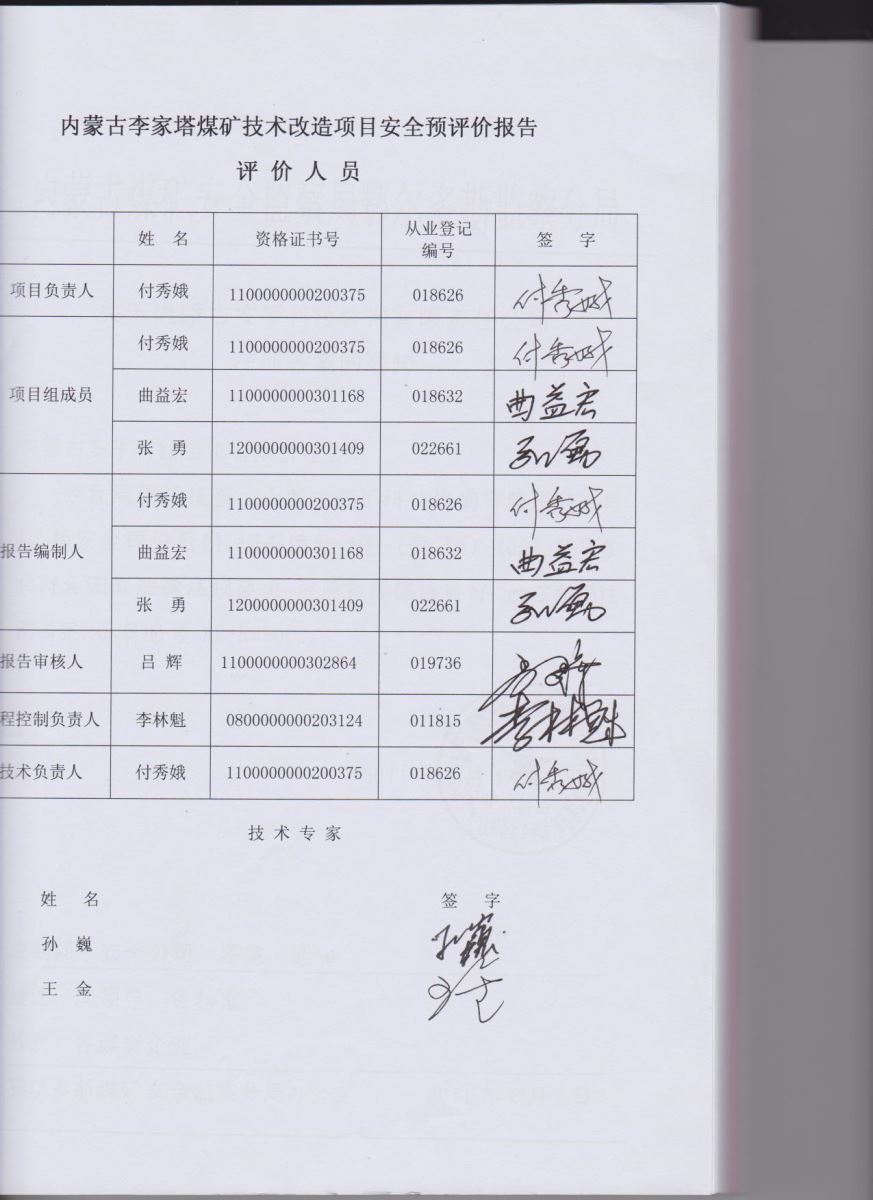 内蒙古李家塔煤矿技术改造项目安全预评价报告
评价人员
姓 名 资格证书号 从业登记编号 签 字
项目负责人 付秀娥 1100000000200375 018626 付秀娥
项目组成员 付秀娥 1100000000200375 018626 付秀娥
曲益宏 1100000000301168 018632 曲益宏
张 勇 1200000000301409 022661
报告编制人 付秀娥 1100000000200375 018626 付秀娥
曲益宏 1100000000301168 018632 曲益宏
张 勇 1200000000301409 022661
报告审核人 吕 辉 1100000000302864 019736
程控制负责人 李林魁 0800000000203124 011815 李林魁
技术负责人 付秀娥 1100000000200375 018626 付秀娥
技 术 专 家
姓 名 签 字
孙 巍
王 金